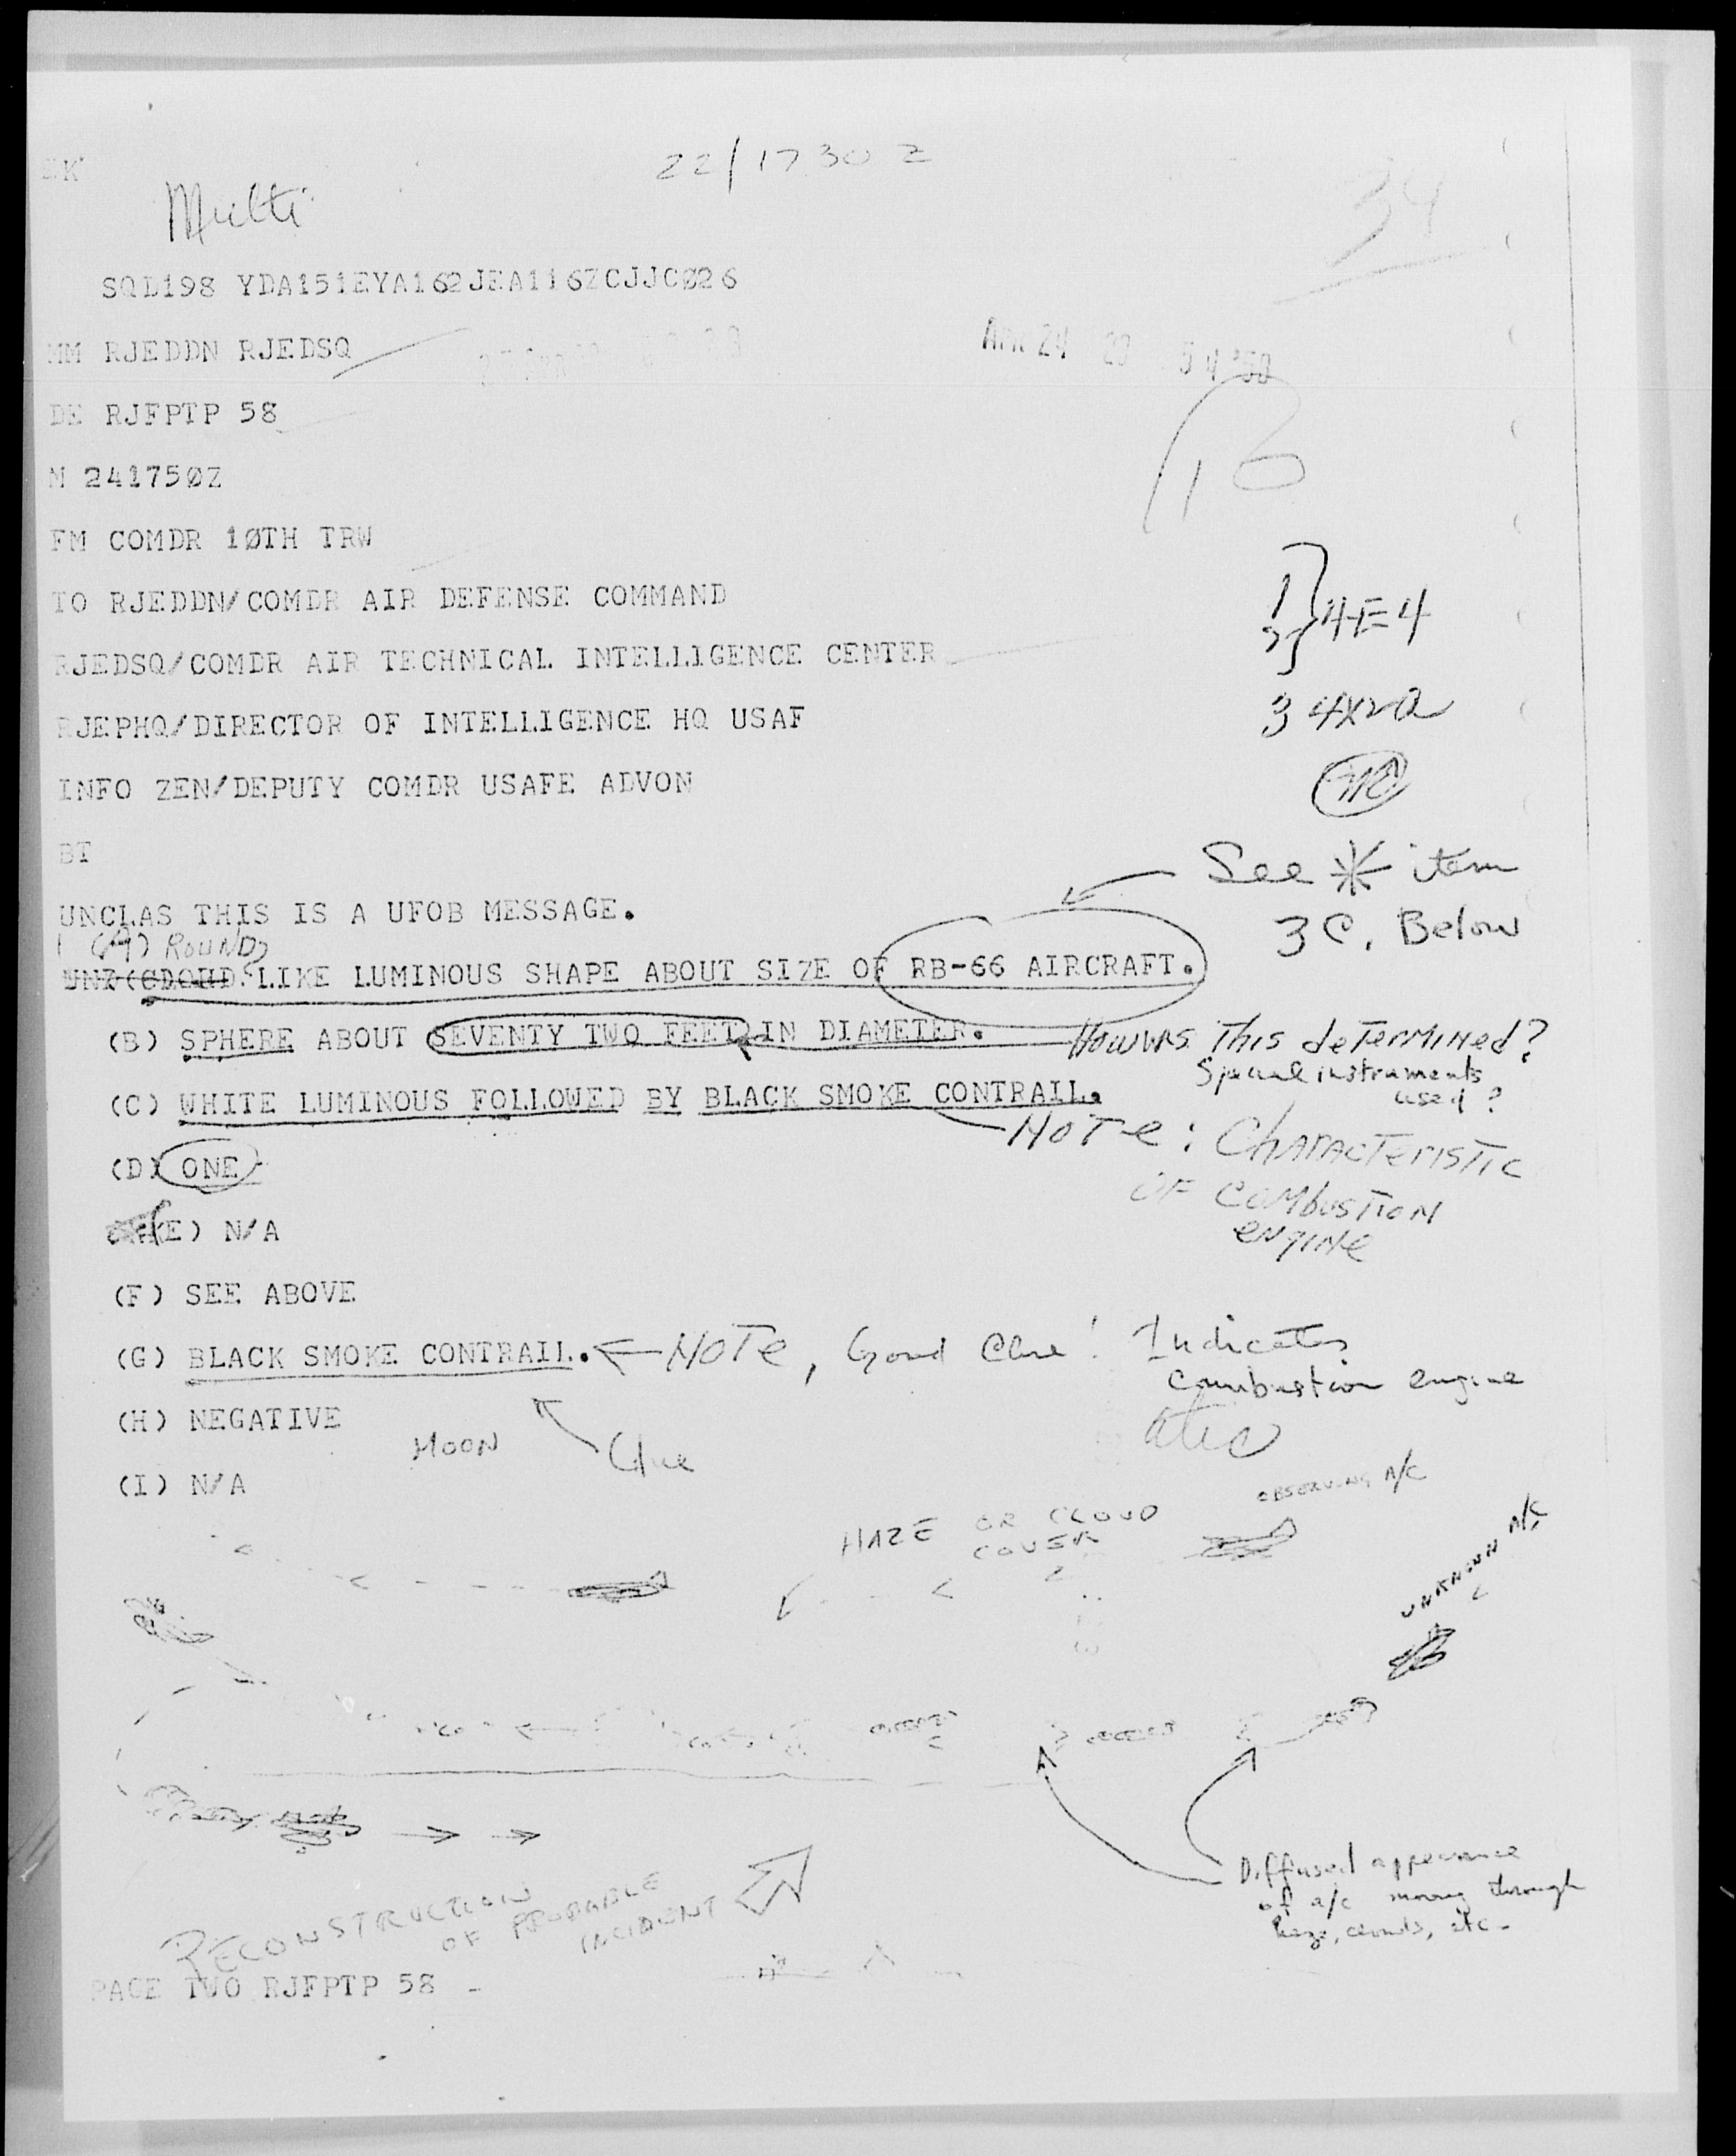 22/1730 Z
Multi
34
SQD198 YDA151EYA162JEA116ZCJJCØ26
MM RJEDDN RJEDSQ
APR 24
DE RJFPTP 58
16
M 24175ØZ
FM COMDR 1ØTH TRW
TO RJEDDN/COMDR AIR DEFENSE COMMAND
4E4
RJEDSQ/COMDR AIR TECHNICAL INTELLIGENCE CENTER
RJEPHQ/DIRECTOR OF INTELLIGENCE HQ USAF
3 4X2a
INFO ZEN/DEPUTY COMDR USAFE ADVON
BT
See * item
3C. Below
UNCLAS THIS IS A UFOB MESSAGE.
1 (A) ROUND
LIKE LUMINOUS SHAPE ABOUT SIZE OF RB-66 AIRCRAFT.
(B) SPHERE ABOUT SEVENTY TWO FEET IN DIAMETER.
How was This deTermined?
Special instruments
used?
(C) WHITE LUMINOUS FOLLOWED BY BLACK SMOKE CONTRAIL.
NoTe: ChARACTeRISTIC
OF COMbusTION
eNgINe
(D) ONE
(E) N/A
(F) SEE ABOVE
(G) BLACK SMOKE CONTRAIL.
NoTe, Good Clue! Indicates
Combustion engine
(H) NEGATIVE
MOON
Clue
(I) N/A
HAZE OR CLOUD
COVER
OBSERVING A/C
UNKNOWN A/C
Diffused appearance
of a/c moving through
haze, clouds, etc.
RECONSTRUCTION
OF PROBABLE
INCIDENT
PAGE TWO RJFPTP 58